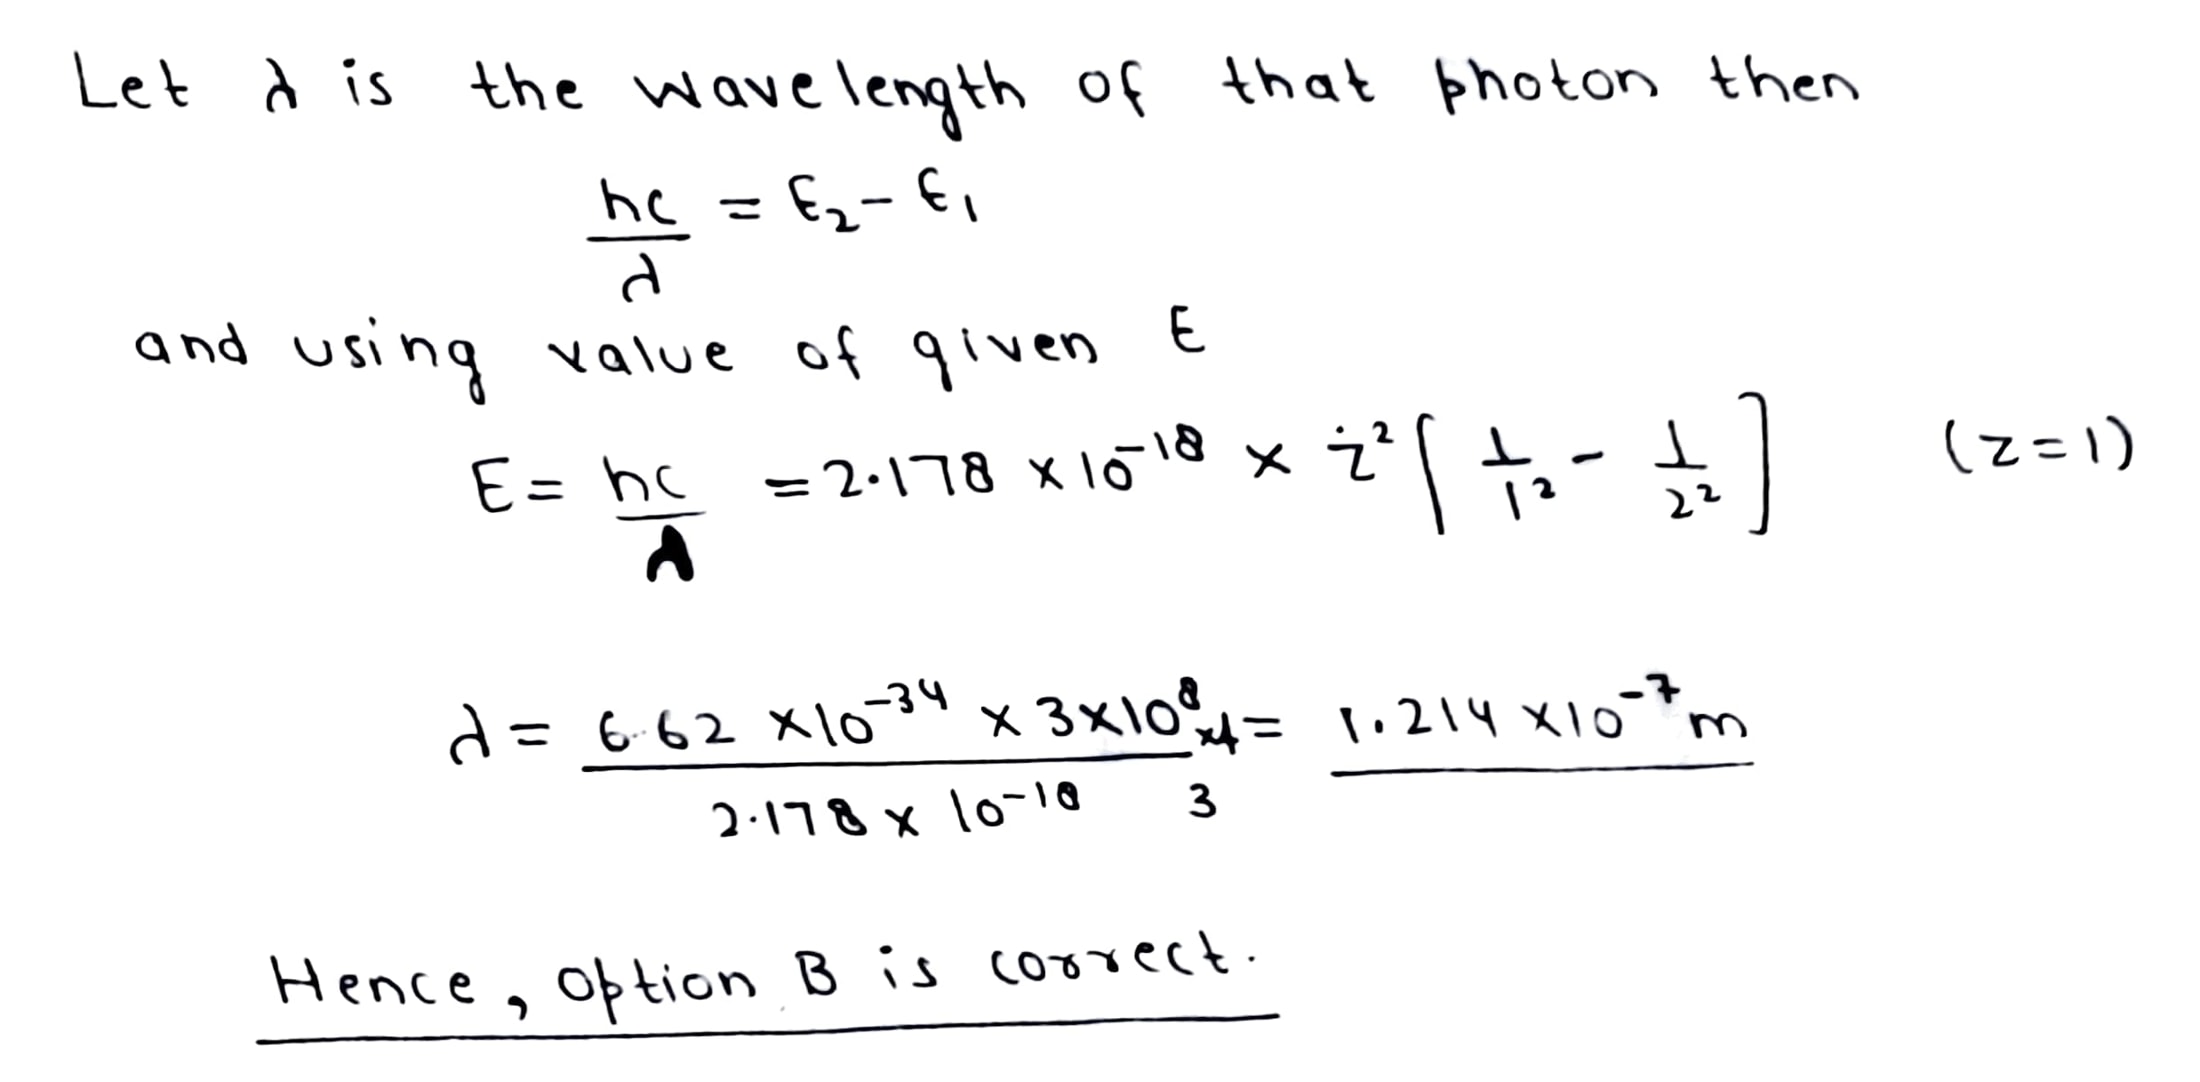 Let λ is the wavelength of that photon then
hc/λ = E₂ - E₁
and using value of given E
E = hc/λ = 2.178 × 10⁻¹⁸ × z² [ 1/1² - 1/2² ] (z = 1)
λ = 6.62 × 10⁻³⁴ × 3 × 10⁸ × 4 / 2.178 × 10⁻¹⁸ 3 = 1.214 × 10⁻⁷ m
Hence, option B is correct.